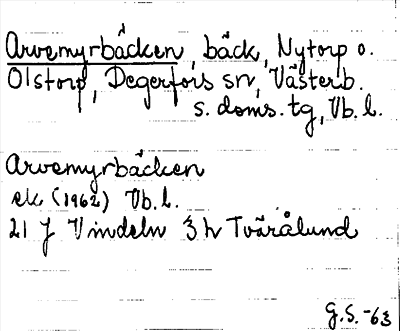 Arvemyrbäcken, bäck, Nytorp o.
Olstorp, Degerfors sn, Västerb.
s. doms. tg, Vb. l.
Arvemyrbäcken
ek (1962) Vb. l.
21 J Vindeln 3 h Tvärålund
G.S. -63